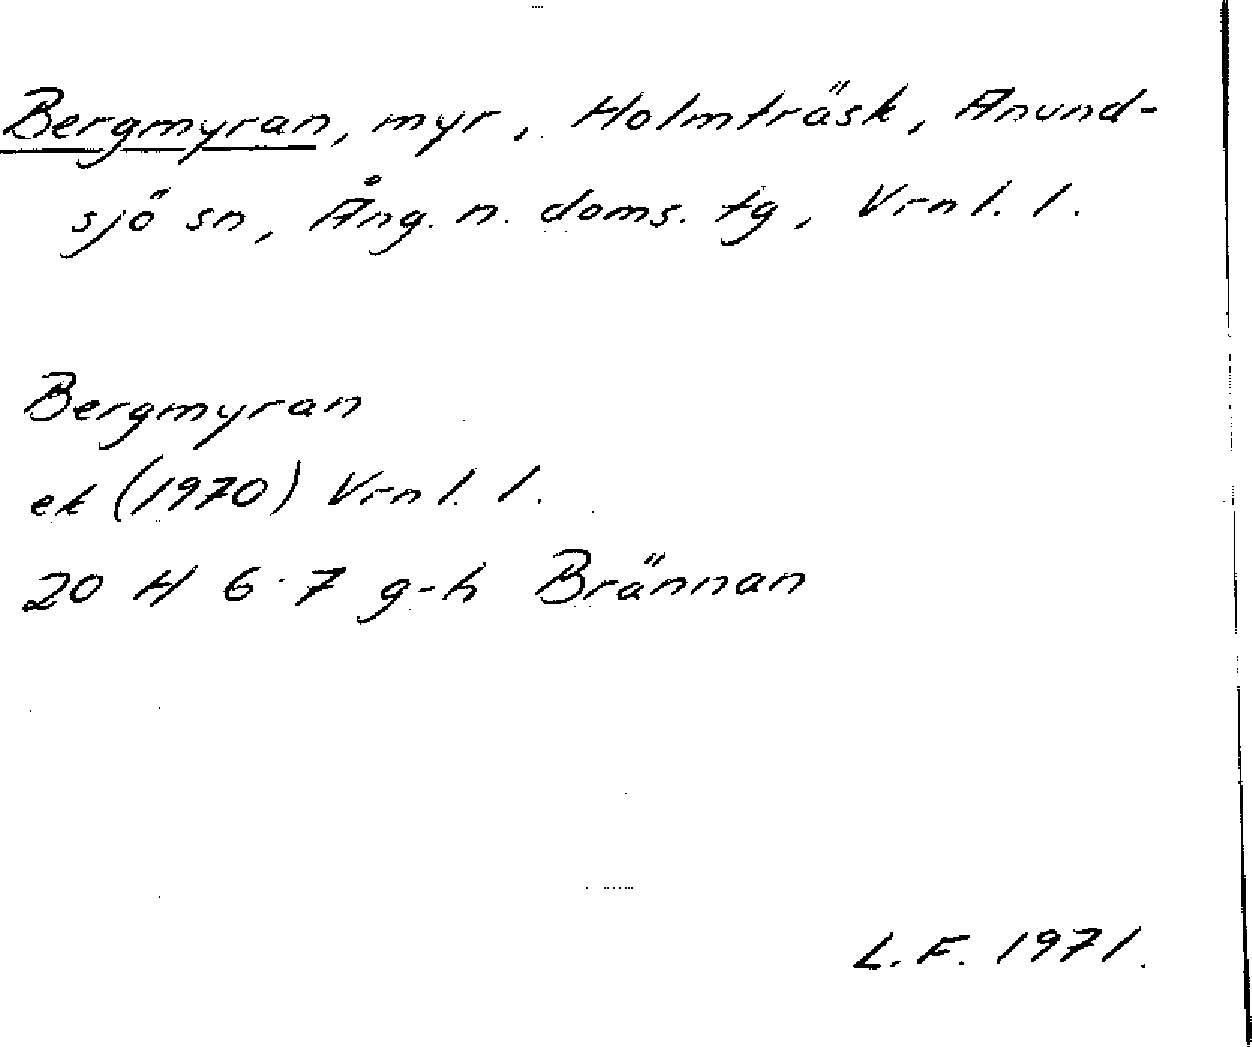 Bergmyran, myr, Holmträsk, Anund-
sjö sn, Ång. n. doms. tg, Vrnl. l.
Bergmyran
ek (1970) Vrnl. l.
20 H 6-7 g-h Brännan
L.F. 1971.